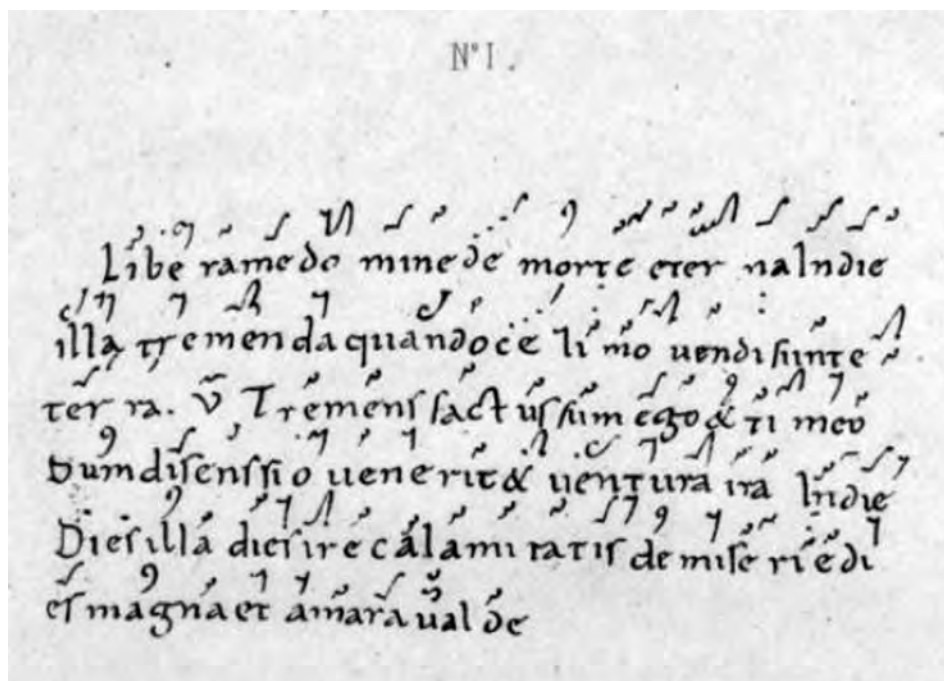 N° I.
Libe rame do mine de morte eter na Indie
illa tremenda quando ce li mo uendi sunt e
ter ra. V Tremens factus sum ego & ti meo
Dum disenssio uenerit & uentura ira Indie
Dies illa dies ire calami tatis de mise rie di
es magna et amara ual de